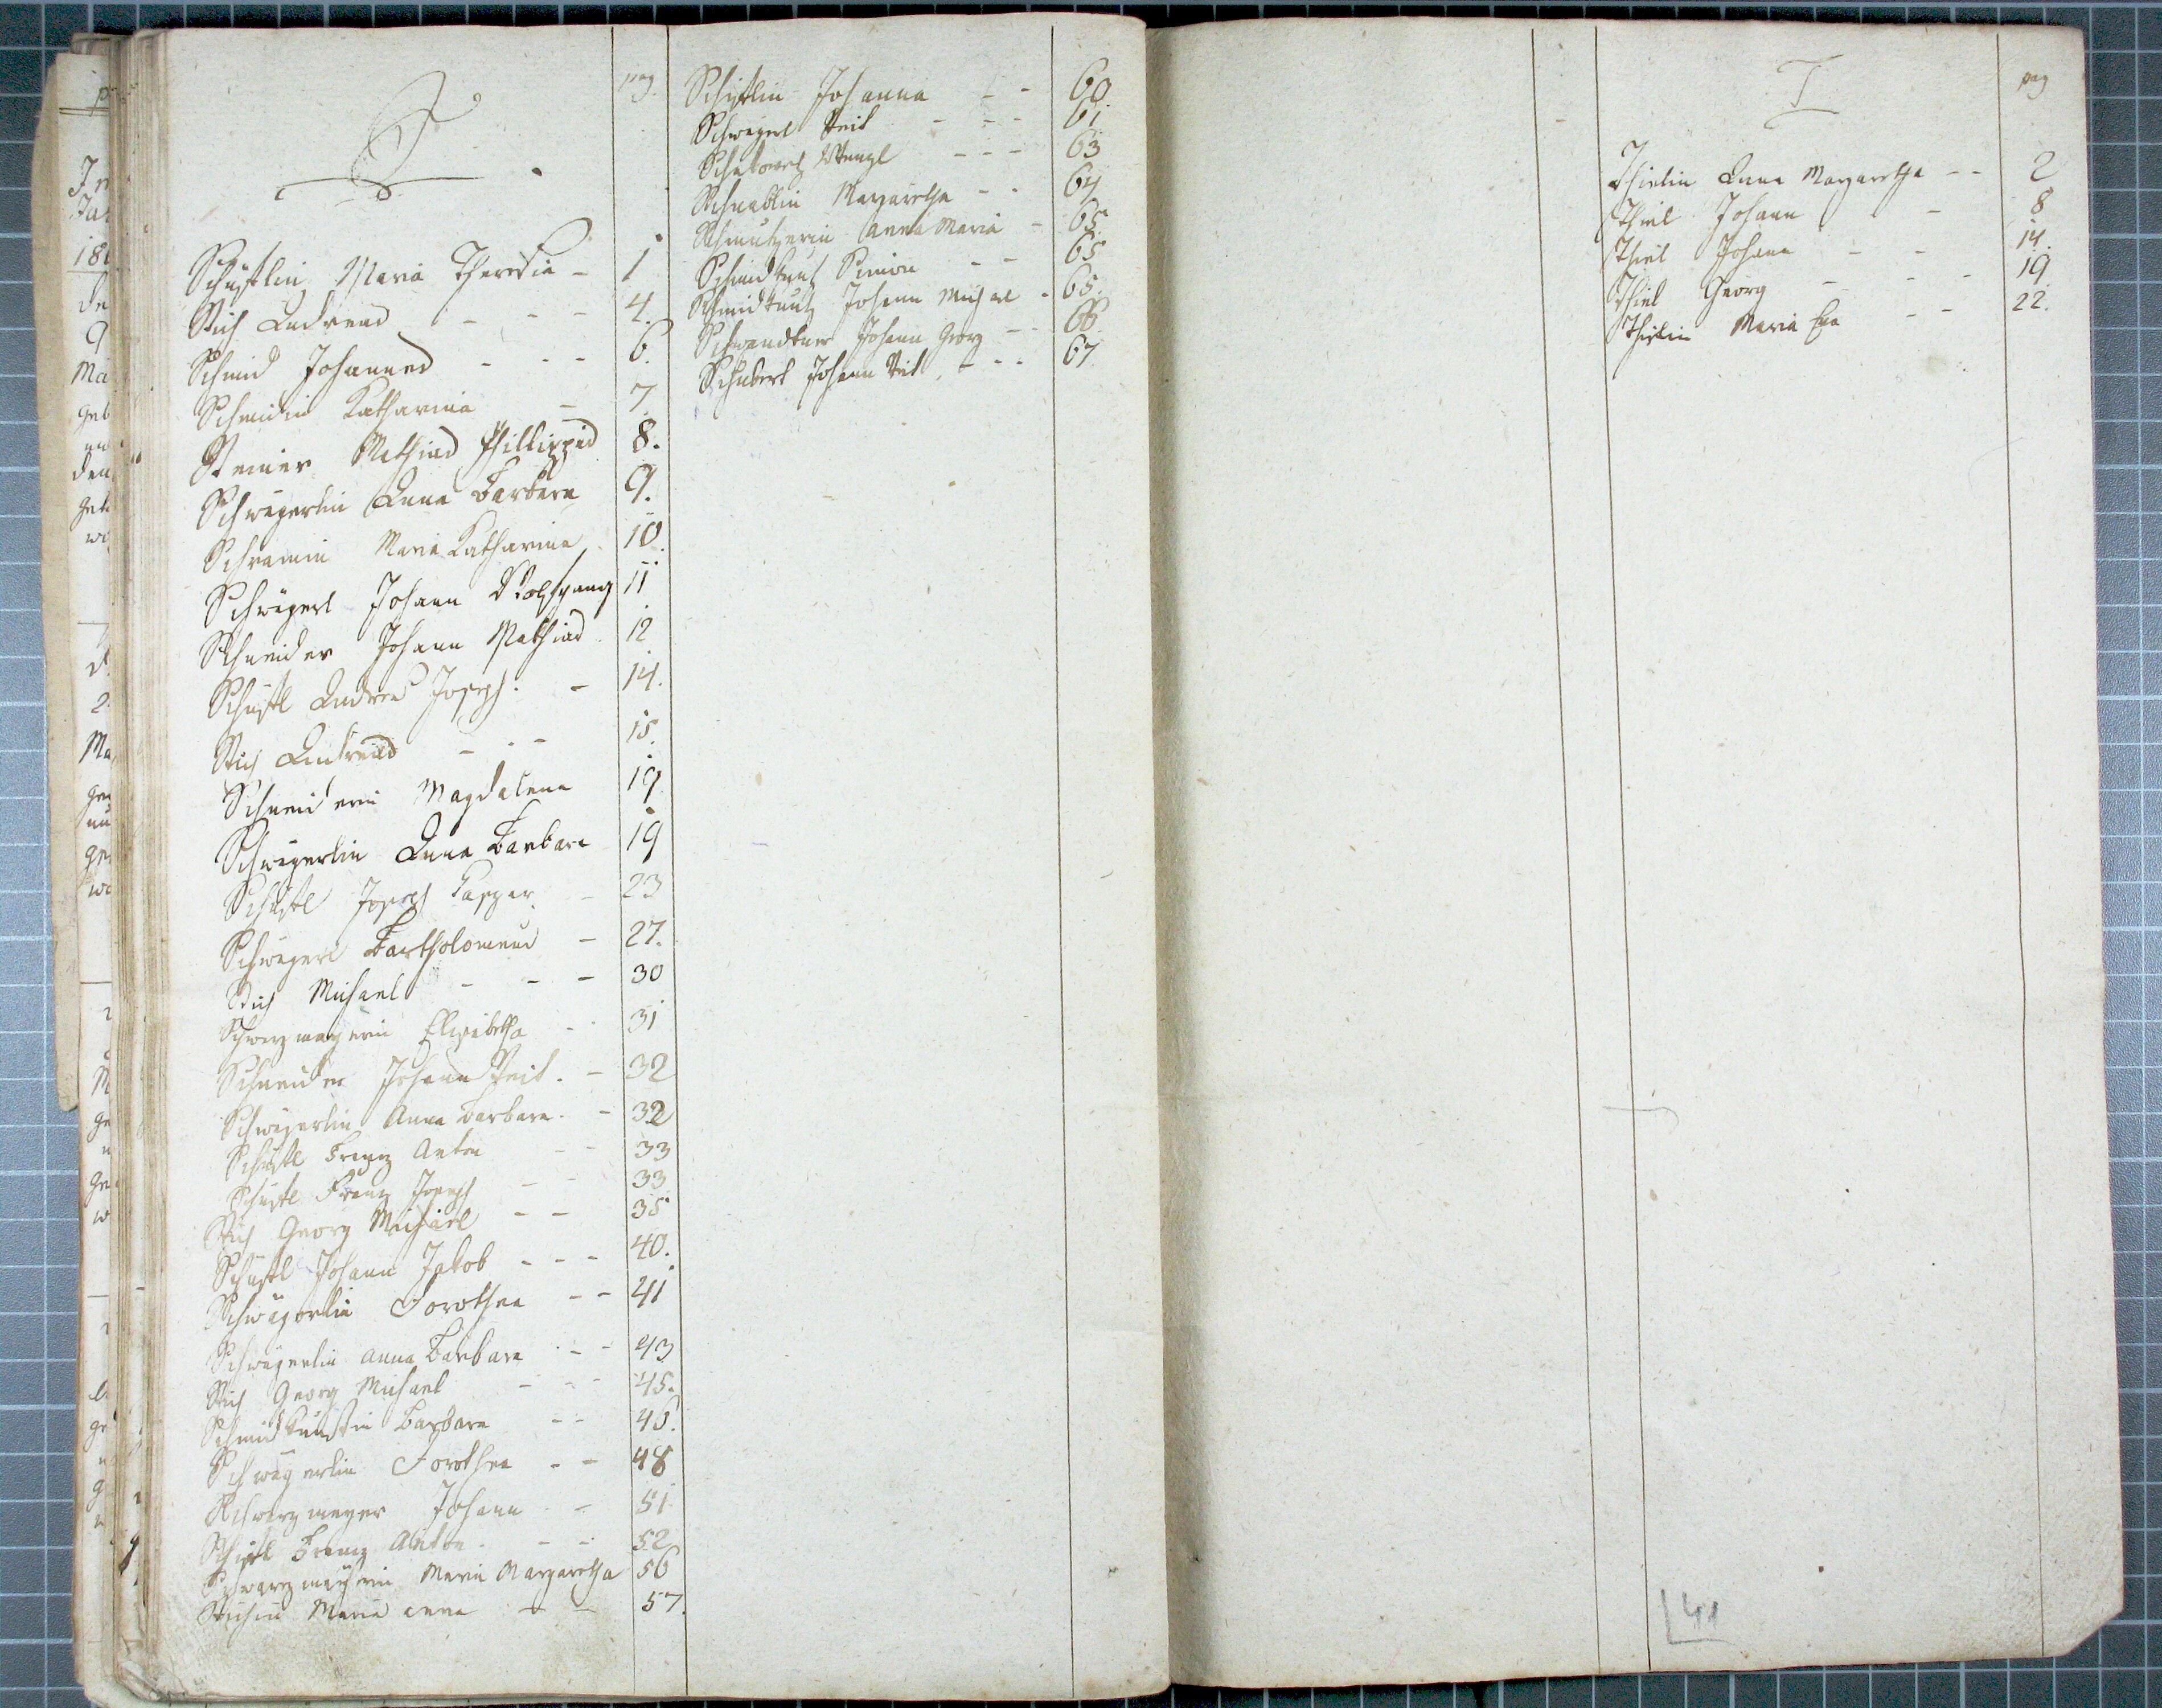 S.
pag.
Schustlin Maria Theresia - 1
Stich Andreas - - - 4.
Schmid Johannes - - - 6.
Schmidin Katharina - 7
Steiner Mathias Phillippus 8.
Schwägerlin Anna Barbara 9.
Schramin Maria Katharina 10.
Schwägerl Johann Wolfgang 11
Schneider Johann Mathias 12
Schustl Andrea Joseph. - 14.
Stich Andreas - - - 15.
Schneiderin Magdalena 19
Schwägerlin Anna Barbara 19
Schustl Joseph Caspar - 23
Schwägerl Bartholomeus - 27.
Stich Michael - - - 30
Schwarzmayerin Elisabetha - 31
Schneider Johann Veit. - 32
Schwägerlin Anna Barbara. - 32
Schustl Franz Anton - - 33
Schustl Franz Joseph - - 33
Stich Georg Michael - - 35
Schustl Johann Jakob - - - 40.
Schwägerlin Dorothea - - 41
Schwägerlin Anna Barbara - - 43
Stich Georg Michael - - - 45.
Barbara - - 45.
Schwägerlin Dorothea - - 48
Schwarzmeyer Johann - - 51
Schustl Franz Anton - - - 52
Schwarzmayerin Maria Margaretha 56
Stichin Maria Anna - - 57.
Schustlin Johanna - - 60
Schwägerl Veit - - - 61
Wenzl - - - 63
Schnablin Margaretha - - 64
Schmutzerin Anna Maria - 65.
Simon - - 65
Johann Michael - 65.
Schwandtner Johann Georg - - 66.
Schubert Johann Veit - - - 67
T
pag
Thielin Anna Margaretha - - 2
Thiel Johann - 8
Thiel Johann - - 14.
Thiel Georg - - - 19
Thielin Maria Eva - - 22.
41